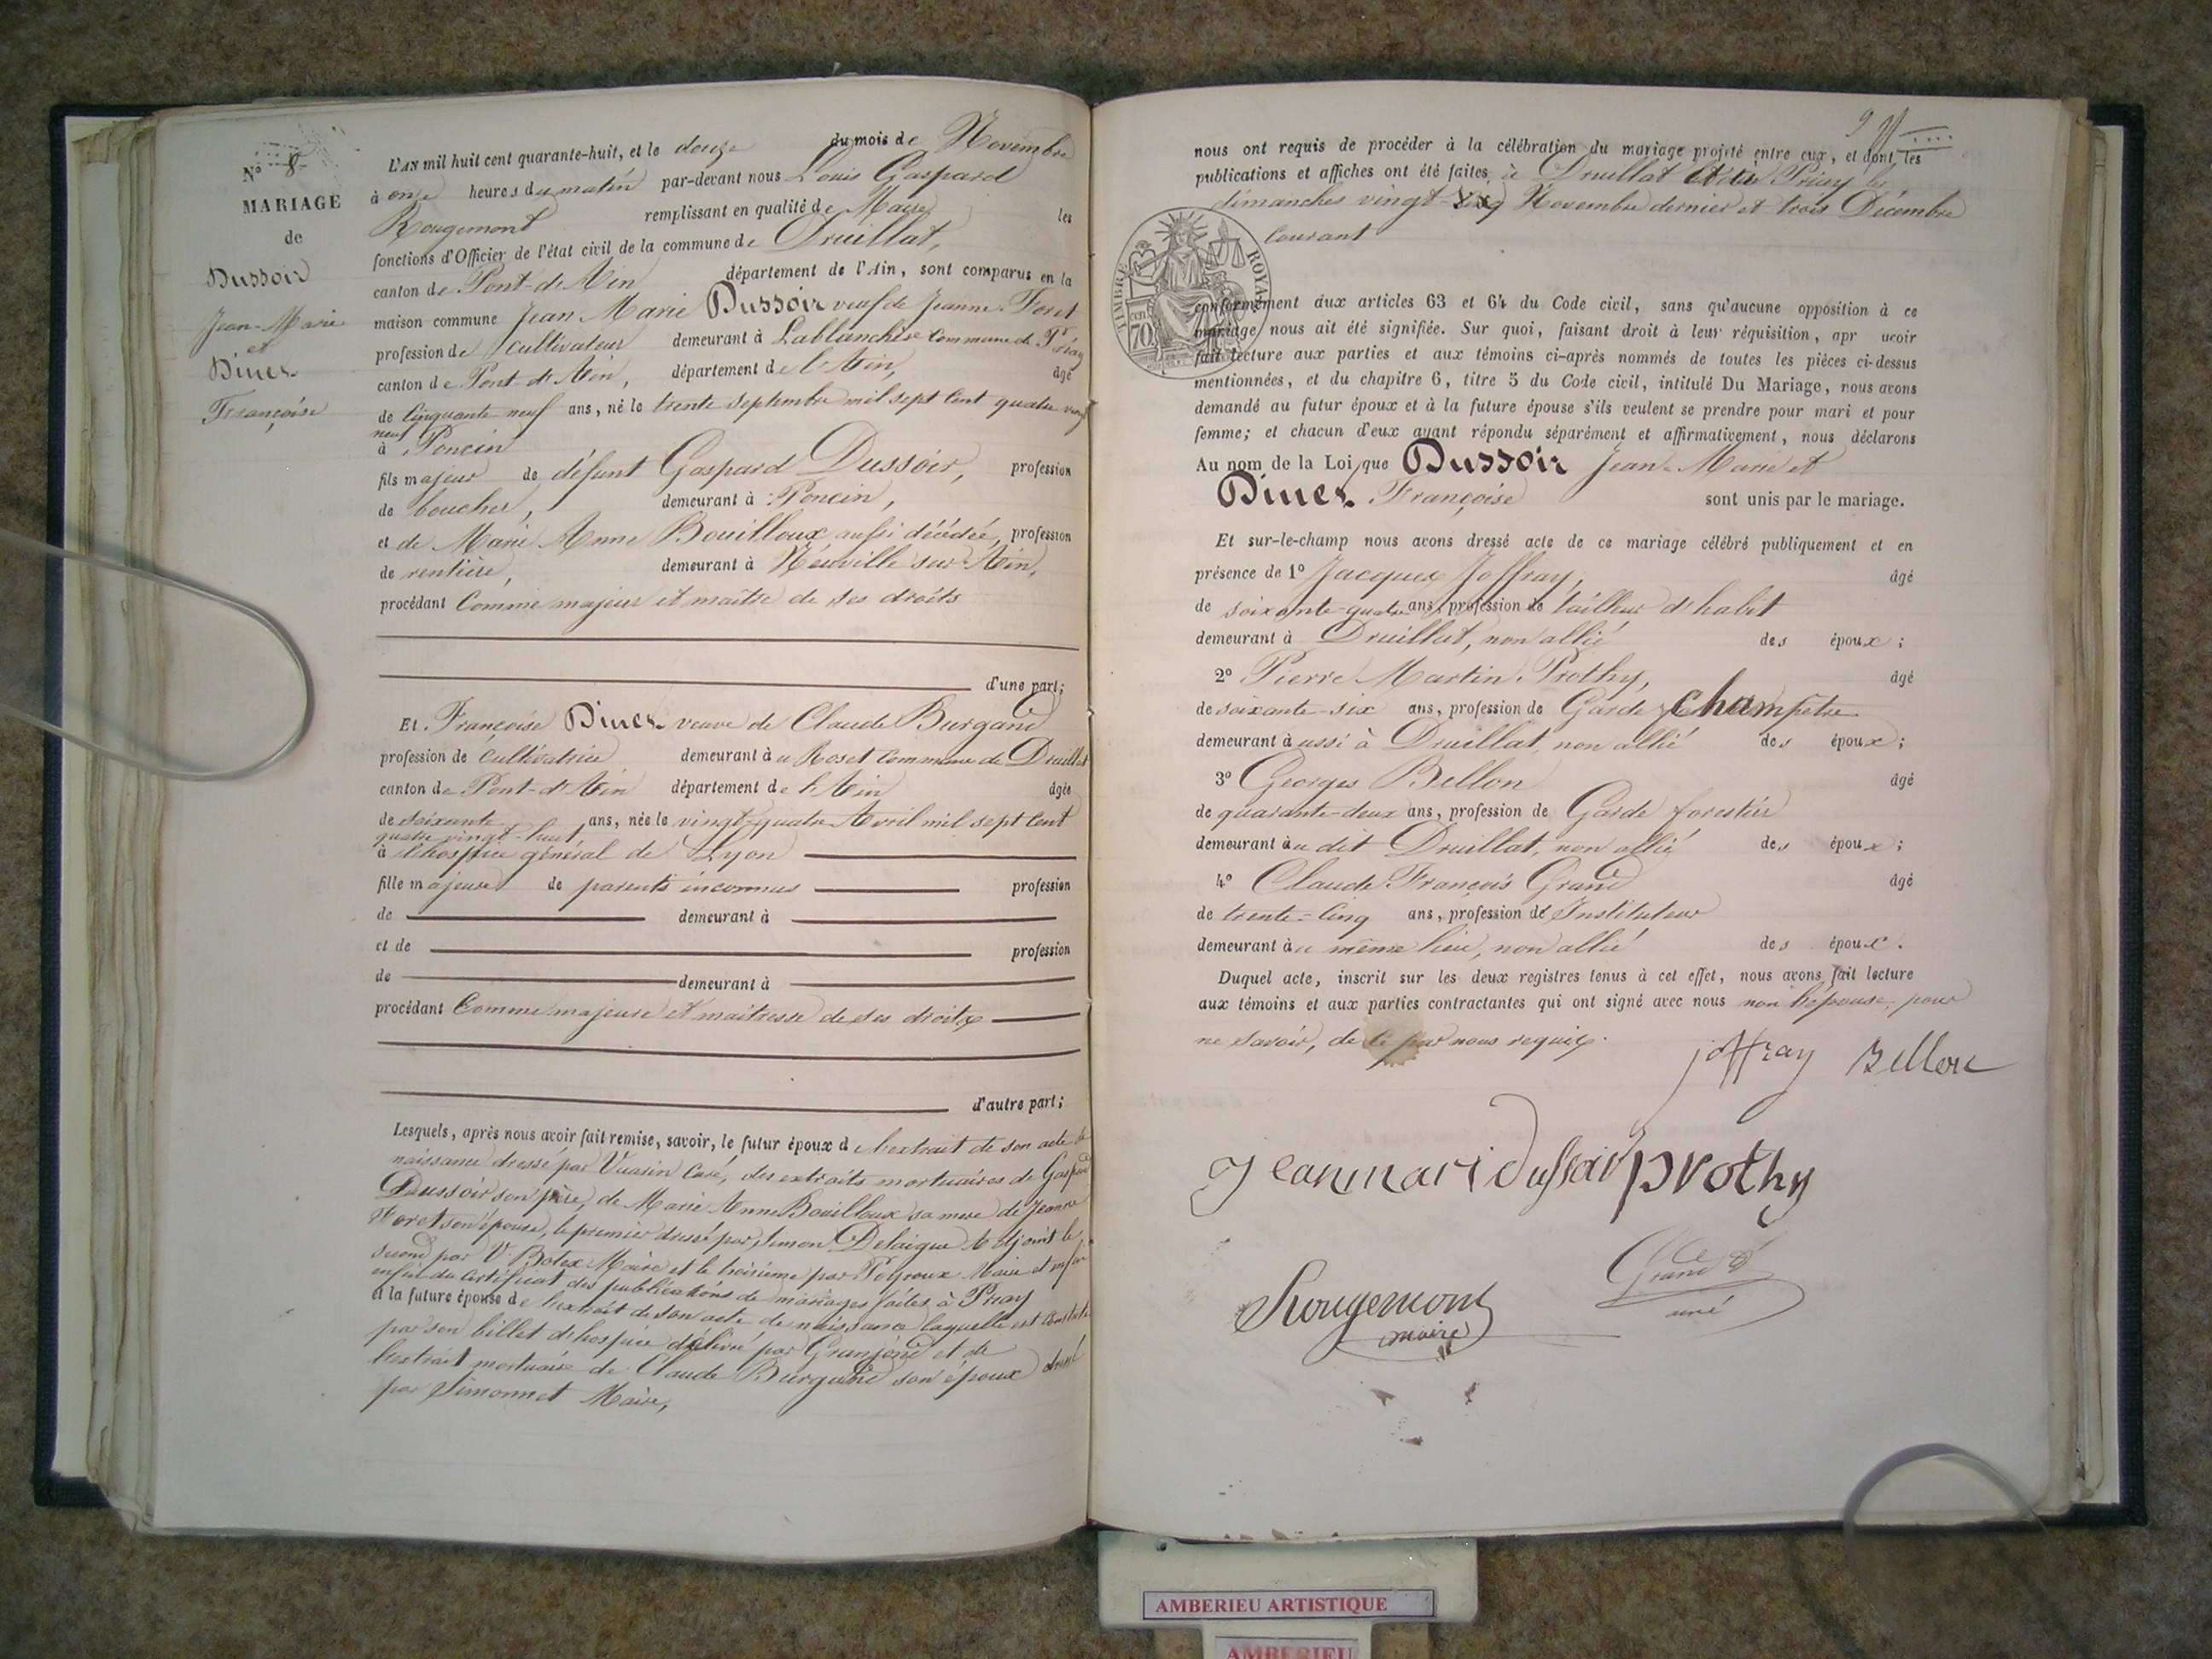 N° 8
MARIAGE
de
Dussoir
Jean-Marie
et
Dines
Françoise
L'AN mil huit cent quarante-huit, et le douze du mois de Novembre
à onze heures du matin par-devant nous Louis Gaspard
Rougemont remplissant en qualité de Maire les
fonctions d'Officier de l'état civil de la commune de Druillat,
canton de Pont-d'Ain département de l'Ain, sont comparus en la
maison commune Jean Marie Dussoir veuf de Jeanne
profession de cultivateur demeurant à Lablanchère commune de Priay
canton de Pont-d'Ain, département de l'Ain, âgé
de cinquante-neuf ans, né le trente Septembre mil sept cent quatre vingt
neuf
à Poncin
fils majeur de défunt Gaspard Dussoir, profession
de boucher, demeurant à Poncin,
et de Marie Anne Bouilloux aussi décédée, profession
de rentière, demeurant à Neuville sur Ain,
procédant comme majeur et maître de ses droits
d'une part;
Et Françoise Dines veuve de Claude Burgand
profession de cultivatrice demeurant au Roset commune de Druillat
canton de Pont-d'Ain département de l'Ain âgée
de soixante ans, née le vingt-quatre Avril mil sept cent
quatre vingt-huit
à l'hospice général de Lyon
fille majeure de parents inconnus profession
de demeurant à
et de profession
de demeurant à
procédant comme majeure et maitresse de ses droits
d'autre part;
Lesquels, après nous avoir fait remise, savoir, le futur époux de l'extrait de son acte de
naissance dressé par Vuarin Curé, des extraits mortuaires de Gaspard
Dussoir son père, de Marie Anne Bouilloux sa mere de Jeanne
Foret son épouse, le premier dressé par Simon Delaigue Adjoint le
second par V. Botex Maire et le troisième par Peyroux Maire et enfin
enfin du certificat des publications de mariages faites à Priay
et la future épouse de l'extrait de son acte de naissance laquelle est constatée
par son billet d'hospice délivré par Granjond et de
l'extrait mortuaire de Claude Burgand son époux dressé
par Simonnet Maire,
nous ont requis de procéder à la célébration du mariage projeté entre eux, et dont les
publications et affiches ont été faites à Druillat et à Priay les
dimanches vingt-six Novembre dernier et trois Décembre
courant
TIMBRE ROYAL
70
conformément aux articles 63 et 64 du Code civil, sans qu'aucune opposition à ce
mariage nous ait été signifiée. Sur quoi, faisant droit à leur réquisition, apr avoir
fait lecture aux parties et aux témoins ci-après nommés de toutes les pièces ci-dessus
mentionnées, et du chapitre 6, titre 5 du Code civil, intitulé Du Mariage, nous avons
demandé au futur époux et à la future épouse s'ils veulent se prendre pour mari et pour
femme; et chacun d'eux ayant répondu séparément et affirmativement, nous déclarons
Au nom de la Loi, que Dussoir Jean-Marie et
Dines Françoise sont unis par le mariage.
Et sur-le-champ nous avons dressé acte de ce mariage célébré publiquement et en
présence de 1° Jacques Joffray, âgé
de soixante-quatre ans, profession de tailleur d'habit
demeurant à Druillat, non allié des époux;
2° Pierre Martin Prothy, âgé
de soixante-six ans, profession de Garde champêtre
demeurant aussi à Druillat, non allié des époux;
3° Georges Bellon âgé
de quarante-deux ans, profession de Garde forestier
demeurant au dit Druillat, non allié des époux;
4° Claude François Grand âgé
de trente-cinq ans, profession de Instituteur
demeurant au même lieu, non allié des époux.
Duquel acte, inscrit sur les deux registres tenus à cet effet, nous avons fait lecture
aux témoins et aux parties contractantes qui ont signé avec nous non l'épouse, pour
ne savoir, de ce par nous requis.
joffray Bellon
Jean mari dussoir prothy
Rougemont
maire
Grand
AMBERIEU ARTISTIQUE
AMBERIEU